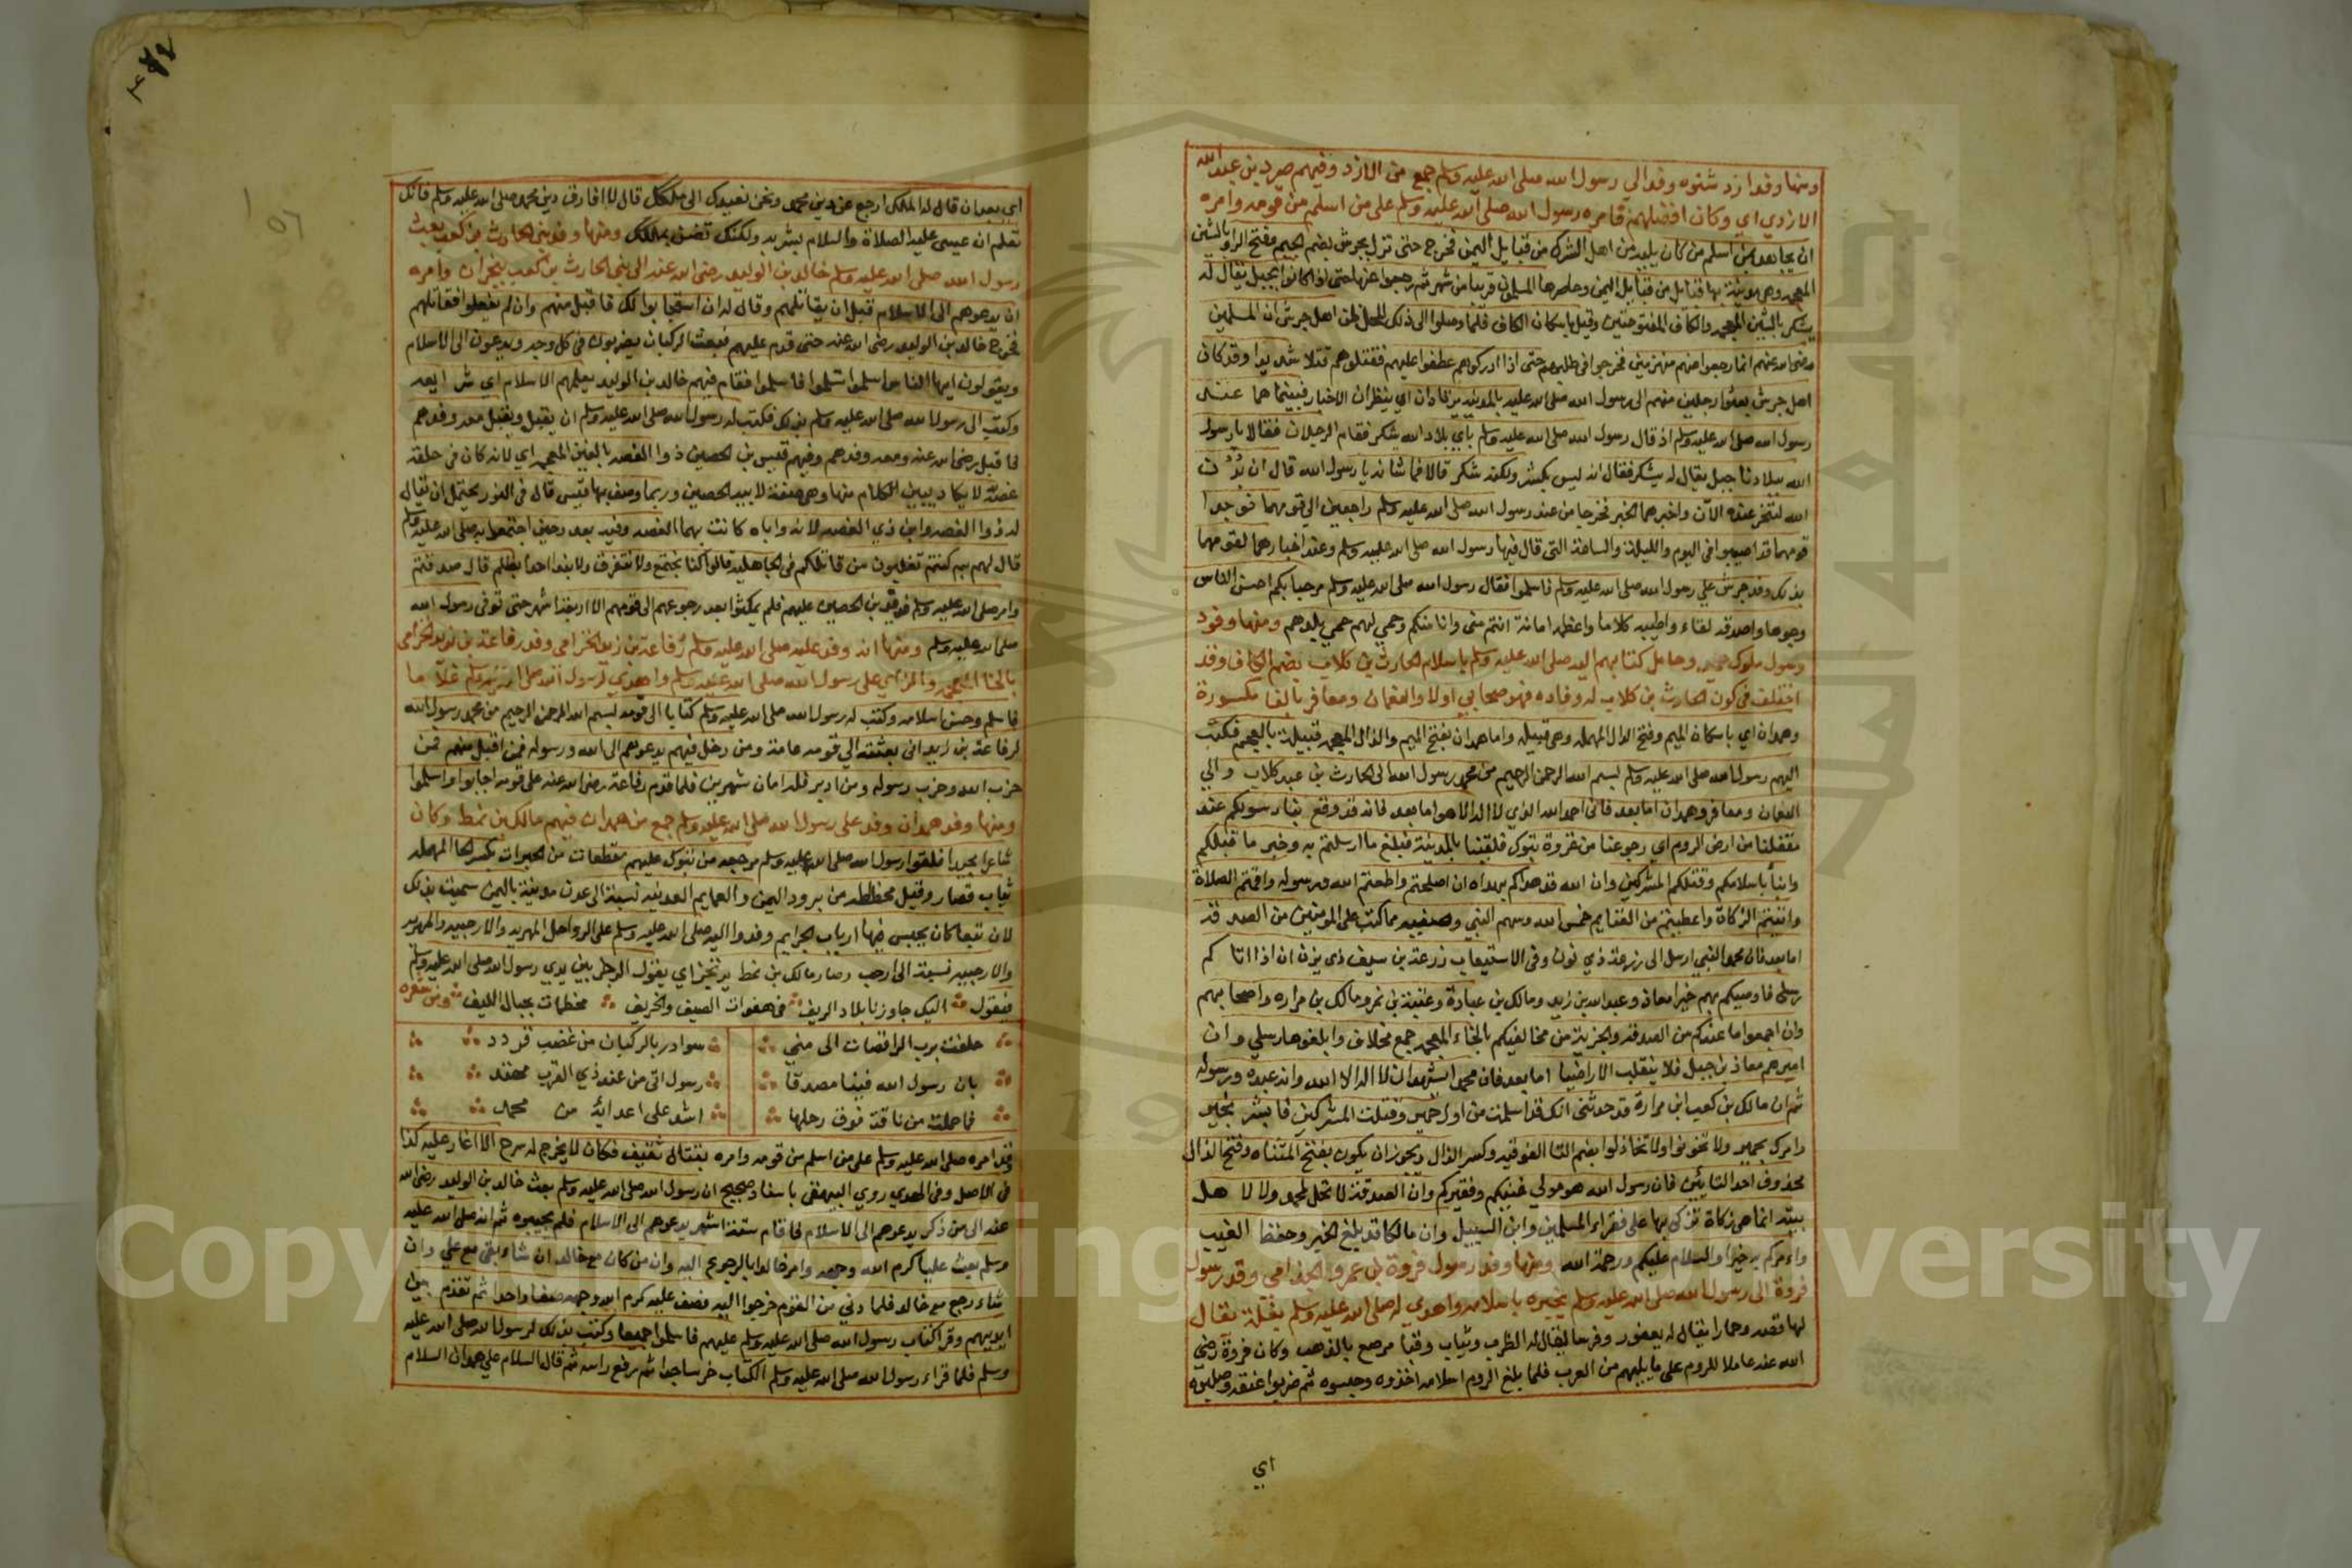 ومنها وفد ازد شنوه وفد الي رسول الله صلى الله عليه وسلم جمع من الازد وفيهم صرد بن عبد الله
الازدي اي وكان افضلهم فامره رسول الله صلى الله عليه وسلم على من اسلم من قومه وامره
ان يجاهد بمن اسلم من كان يليه من اهل الشرك من قبايل اليمن فخرج حتى نزل بجرش بضم الجيم وفتح الرا وبالشين
المعجمه وهي مدينة بها قبايل من قبايل اليمن وحاصرها المسلمون قريبا من شهر ثم رجعوا عنها حتى اذا كانوا بجبل يقال له
شكر بالشين المعجمه والكاف المفتوحتين وقيل باسكان الكاف فلما وصلوا الى ذلك المحل ظن اهل جرش ان المسلمين
رضى الله عنهم انما رجعوا عنهم منهزمين فخرجوا في طلبهم حتى اذا ادركوهم عطفوا عليهم فقتلوهم قتلا شديدا وقد كان
اهل جرش بعثوا رجلين منهم الى رسول الله صلى الله عليه بالمدينة يرتادان اي ينظران الاخبار فبينما هما عند
رسول الله صلى الله عليه وسلم اذ قال رسول الله صلى الله عليه وسلم باي بلاد الله شكر فقام الرجلان فقالا يا رسول
الله ببلادنا جبل يقال له يشكر فقال انه ليس بكشر ولكنه شكر قالا فما شانه يا رسول الله قال ان بُدْن
الله لتنحر عنده الآن واخبرهما الخبر فخرجا من عند رسول الله صلى الله عليه وسلم راجعين الي قومهما فوجدا
قومهما قد اصيبوا في اليوم والليلة والساعة التي قال فيها رسول الله صلى الله عليه وسلم وعند اخبارهما لقومهما
بذلك وفد جرش علي رسول الله صلى الله عليه وسلم فاسلموا فقال رسول الله صلى الله عليه وسلم مرحبا بكم احسن الناس
وجوها واصدقه لقاء واطيبه كلاما واعظمه امانة انتم منى وانا منكم وحمي لهم حمي بلدهم ومنها وفود
رسول ملوك حمير وحامل كتابهم اليه صلى الله عليه وسلم باسلام الحارث بن كلاب بضم الكاف وقد
اختلف في كون الحارث بن كلاب له وفاده فهو صحابي اولا والنعمان ومعافر بالفا مكسورة
وهمدان اي باسكان الميم وفتح الدال المهمله وهي قبيله واما همدان بفتح الميم والذال المعجمه قبيلة بالعجم فكتب
اليهم رسول الله صلى الله عليه وسلم بسم الله الرحمن الرحيم من محمد رسول الله الى الحارث بن عبد كلاب والي
النعمان ومعافر وهمدان اما بعد فاني احمد الله الذي لا اله الا هو اما بعد فانه قد وقع بنا رسولكم عند
مقفلنا من ارض الروم اي رجوعنا من غزوة تبوك فلقينا بالمدينة فبلغ ما ارسلتم به وخبر ما قبلكم
وانبأ باسلامكم وقتلكم المشركين وان الله قد هداكم بهداه ان اصلحتم واطعتم الله ورسوله واقمتم الصلاة
واتيتم الزكاة واعطيتم من الغنايم خمس الله وسهم النبي وصفيه مما كتب على المومنين من الصدقه
اما بعد فان محمدا النبي ارسل الى زرعة ذي نون وفي الاستيعاب زرعة بن سيف ذي يزن ان اذا اتاكم
رسلى فاوصيكم بهم خيرا معاذ وعبد الله بن زيد ومالك بن عبادة وعقبة بن نمر ومالك بن مراره واصحابهم
وان اجمعوا ما عندكم من الصدقه والجزية من مخاليفكم بالخاء المعجمه جمع مخلاف وابلغوها رسلي وان
اميرهم معاذ بن جبل فلا ينقلب الا راضيا اما بعد فان محمدا يشهد ان لا اله الا الله وانه عبده ورسوله
ثم ان مالك بن كعب ابن مرارة قد حدثنى انك قد اسلمت من اول حمير وقتلت المشركين فابشر بخير
وامرك بحمير ولا تخونوا ولا تخاذلوا بضم التا الفوقيه وكسر الذال ويجوز ان يكون بفتح المثناه وفتح الذال
محذوف احد التائين فان رسول الله هو مولي غنيكم وفقيركم وان الصدقة لا تحل لمحمد ولا لاهل
بيته انما هي زكاة تزكى بها على فقراء المسلمين وابن السبيل وان مالكا قد بلغ الخبر وحفظ الغيب
واءمركم به خيرا والسلام عليكم ورحمة الله ومنها وفد رسول فروة بن عمرو الجذامي وفد رسول
فروة الى رسول الله صلى الله عليه وسلم يخبره باسلامه واهدي له صلى الله عليه وسلم بغلة يقال
لها فضه وحمارا يقال له يعفور وفرسا يقال له الظرب وثياب وقبا مرصع بالذهب وكان فروة رضي
الله عنه عاملا للروم على ما يليهم من العرب فلما بلغ الروم اسلامه اخذوه وحبسوه ثم ضربوا عنقه وصلبوه
اي
اي بعد ان قال له الملك ارجع عن دين محمد ونحن نعيدك الى ملكك قال لا افارق دين محمد صلى الله عليه وسلم فانك
تعلم ان عيسى عليه الصلاة والسلام بشر به ولكنك تضن بملكك ومنها وفد بني الحارث بن كعب بعث
رسول الله صلى الله عليه وسلم خالد بن الوليد رضى الله عنه الى بني الحارث بن كعب بنجران وامره
ان يدعوهم الى الاسلام قبل ان يقاتلهم وقال له ان استجابوا لك فاقبل منهم وان لم يفعلوا فقاتلهم
فخرج خالد بن الوليد رضى الله عنه حتى قدم عليهم فبعث الركبان يضربون في كل وجه ويدعون الى الاسلام
ويقولون ايها الناس اسلموا تسلموا فاسلموا فقام فيهم خالد بن الوليد يعلمهم الاسلام اي شرايعه
وكتب الى رسول الله صلى الله عليه وسلم بذلك فكتب له رسول الله صلى الله عليه وسلم ان يقبل ويقبل معه وفدهم
فاقبل رضى الله عنه ومعه وفدهم وفيهم قيس بن الحصين ذوا الغصه بالغين المعجمه اي لانه كان في حلقه
غصة لا يكاد يبين الكلام منها وهي صفة لابيه الحصين وربما وصف بها قيس قال في النور يحتمل ان يقال
له ذوا الغصه وابن ذي الغصه لانه واباه كانت بهما الغصه وفيه بعد وحين اجتمعوا به صلى الله عليه وسلم
قال لهم بم كنتم تغلبون من قاتلكم في الجاهليه قالوا كنا نجتمع ولا نتفرق ولا نبدا احدا بظلم قال صدقتم
وامر صلى الله عليه وسلم قيس بن الحصين عليهم فلم يمكثوا بعد رجوعهم الى قومهم الا اربعة اشهر حتى توفى رسول الله
صلى الله عليه وسلم ومنها انه وفد عليه صلى الله عليه وسلم رفاعة بن زيد الخزاعي وفد رفاعة بن زيد الخزاعي
بالخا المعجمه والزاي على رسول الله صلى الله عليه وسلم واهدي لرسول الله صلى الله عليه وسلم غلاما
فاسلم وحسن اسلامه وكتب له رسول الله صلى الله عليه وسلم كتابا الى قومه بسم الله الرحمن الرحيم من محمد رسول الله
لرفاعة بن زيد اني بعثته الي قومه عامة ومن دخل فيهم يدعوهم الى الله ورسوله فمن اقبل منهم فمن
حزب الله وحزب رسوله ومن ادبر فله امان شهرين فلما قدم رفاعة رضى الله عنه على قومه اجابوا واسلموا
ومنها وفد همدان وفد على رسول الله صلى الله عليه وسلم جمع من همدان فيهم مالك بن نمط وكان
شاعرا مجيدا فلقوا رسول الله صلى الله عليه وسلم مرجعه من تبوك عليهم مقطعات من الحبرات بكسر الحا المهمله
ثياب قصار وقيل مخططه من برود اليمن والعمايم العدنيه نسبة الى عدن مدينة باليمن سميت بذلك
لان تبعا كان يحبس فيها ارباب الجرايم وفدوا اليه صلى الله عليه وسلم على الرواحل المهريه والارحبيه والمهريه
والارحبيه نسبة الى ارحب وصار مالك بن نمط يرتجز اي يقول الرجز بين يدي رسول الله صلى الله عليه وسلم
فيقول اليك جاوزنا بلاد الريف في هفوات الصيف والخريف مخطمات بحبال الليف ومن شعره
حلفت برب الراقصات الى منى سوادر بالركبان من غضب قردد
بان رسول الله فينا مصدقا رسول اتى من عند ذي العرش مهتد
فما حملت من ناقة فوق رحلها اشد على اعدائه من محمد
وقد امره صلى الله عليه وسلم على من اسلم من قومه وامره بقتال ثقيف فكان لا يخرج له سرح الا اغار عليه كذا
في الاصل وفي الهدي روي البيهقى باسناد صحيح ان رسول الله صلى الله عليه وسلم بعث خالد بن الوليد رضى الله
عنه الى من ذكر يدعوهم الى الاسلام فاقام ستة اشهر يدعوهم الى الاسلام فلم يجيبوه ثم انه صلى الله عليه
وسلم بعث عليا كرم الله وجهه وامر خالدا بالرجوع اليه وان من كان مع خالد ان شاء بقي مع علي وان
شاء رجع مع خالد فلما دني من القوم خرجوا اليه فصف علي كرم الله وجهه صفا واحدا ثم تقدم بين
ايديهم وقرا كتاب رسول الله صلى الله عليه وسلم عليهم فاسلموا جميعا وكتب بذلك لرسول الله صلى الله عليه
وسلم فلما قراء رسول الله صلى الله عليه وسلم الكتاب خر ساجدا ثم رفع راسه ثم قال السلام على همدان السلام